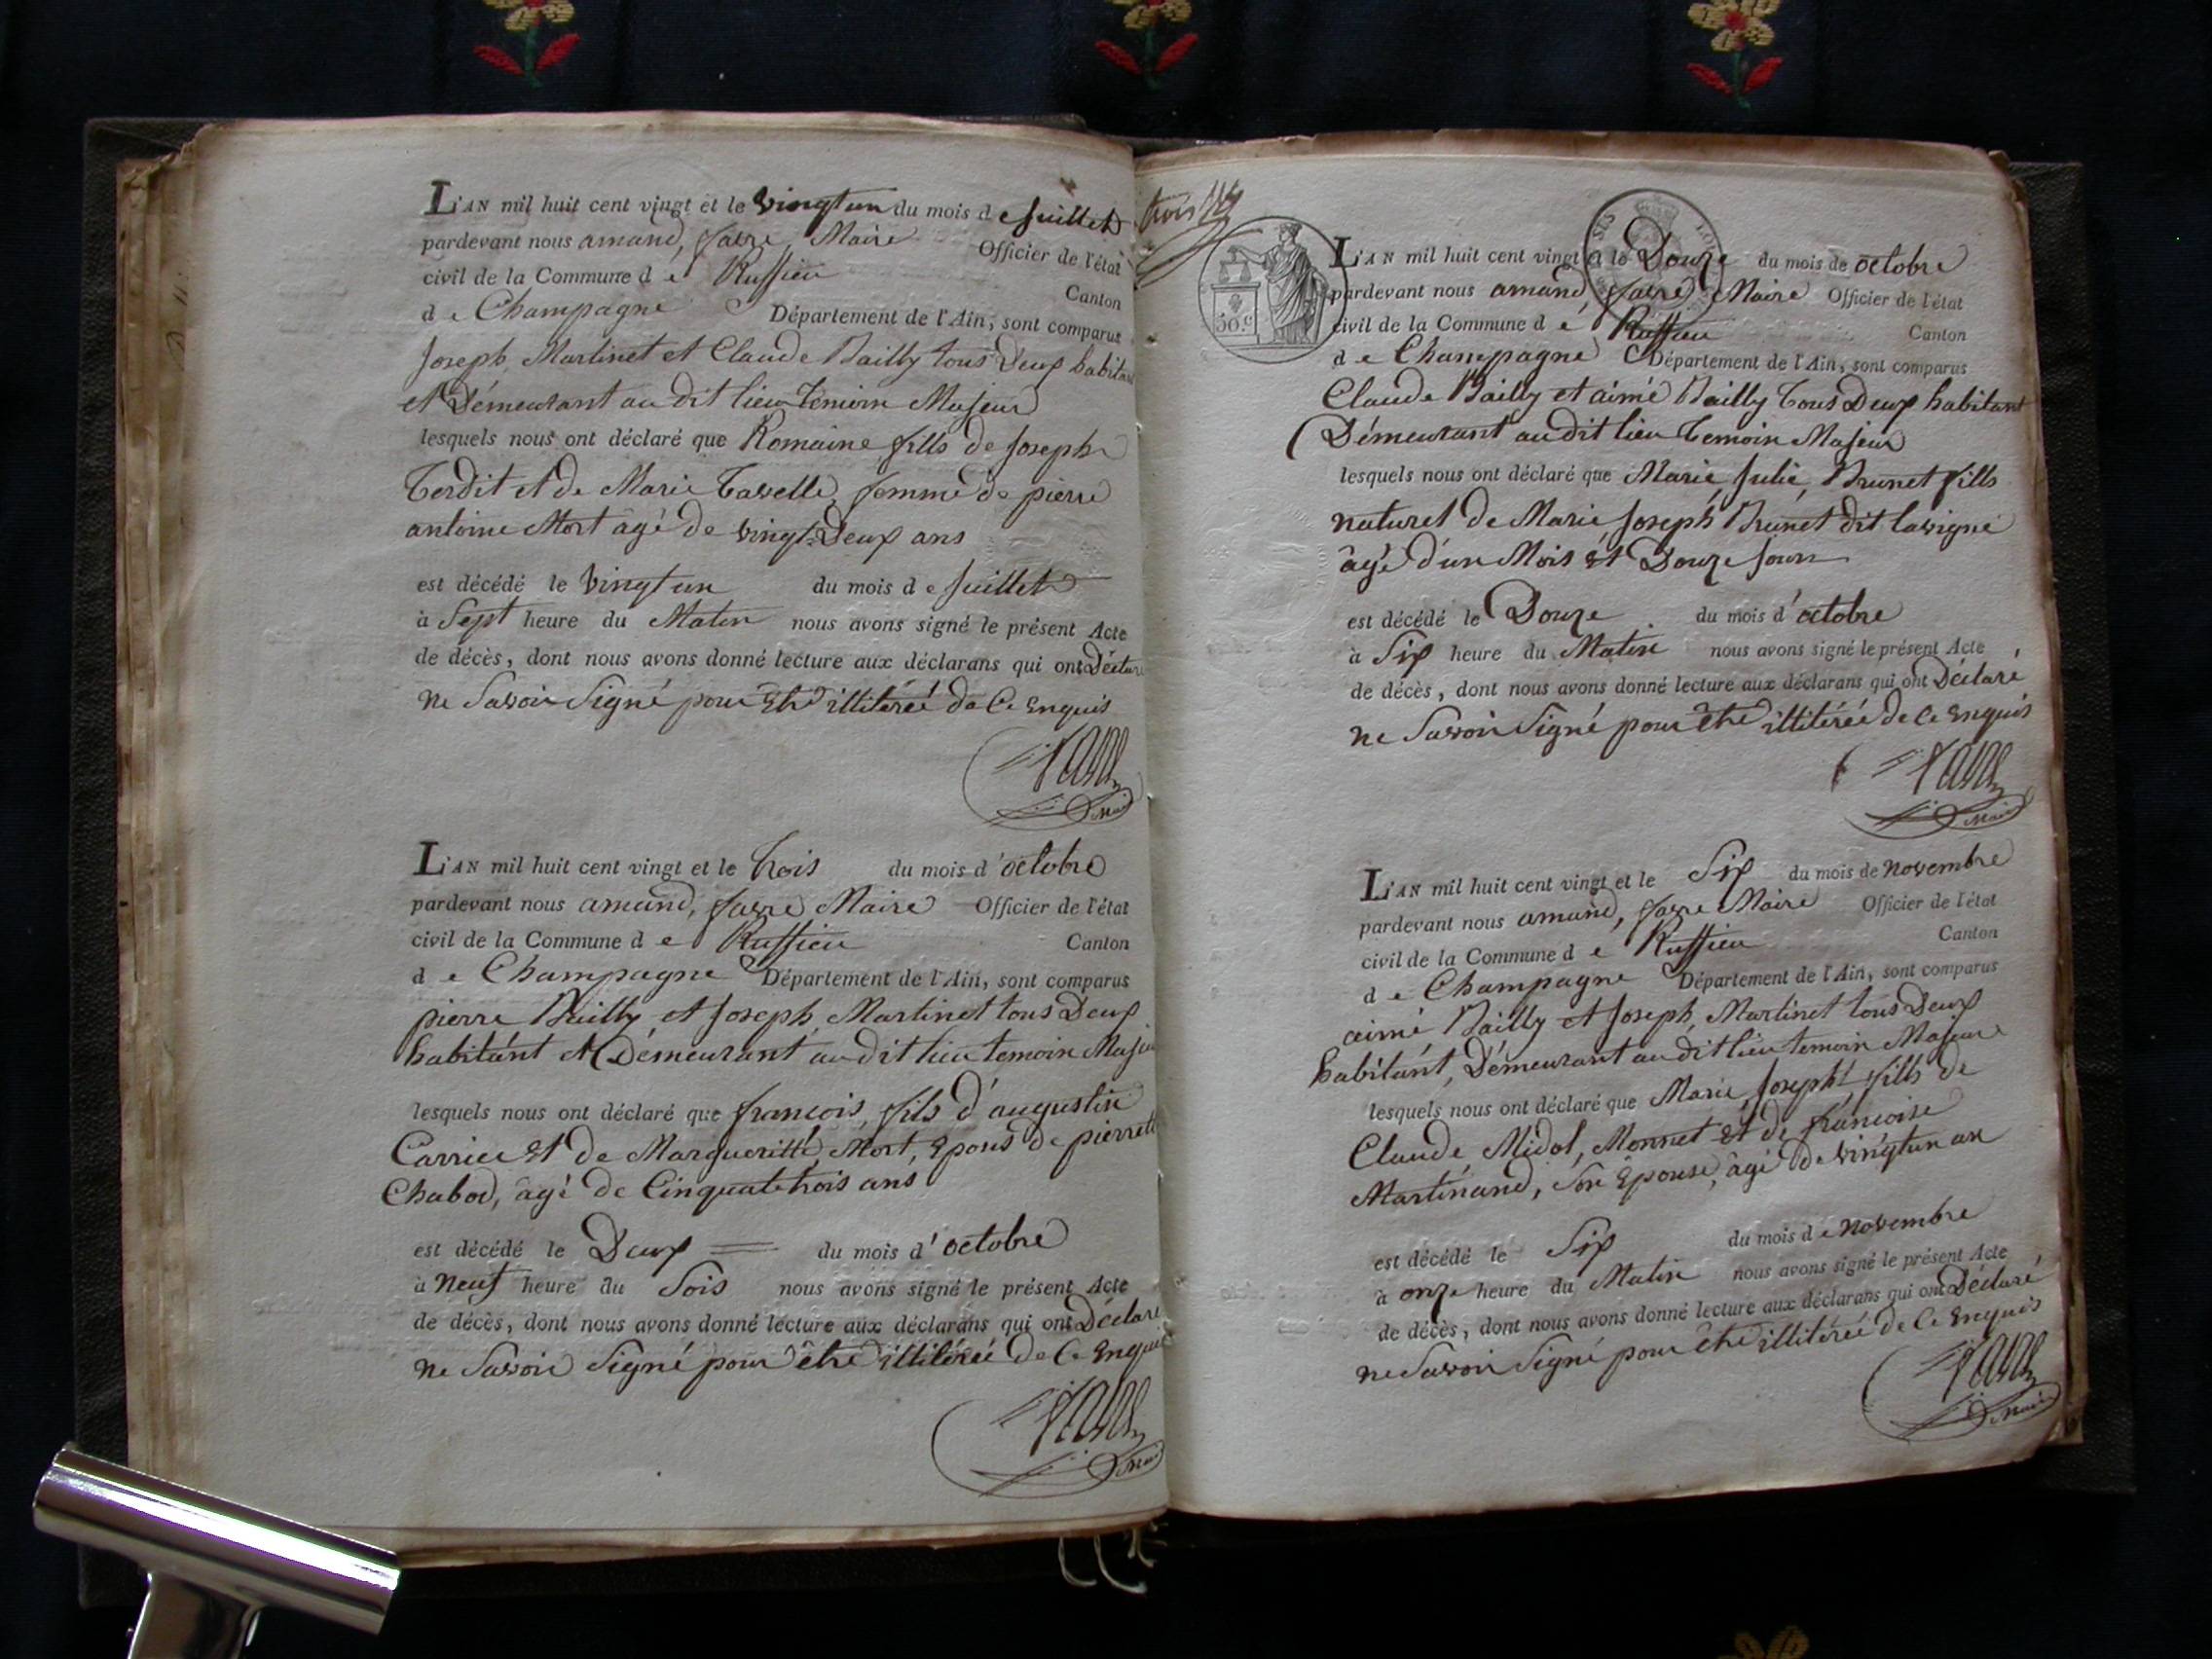 L'AN mil huit cent vingt et le vingt un du mois d e Juillet
pardevant nous amand, favre, Maire Officier de l'état
civil de la Commune d e Ruffieu Canton
d e Champagne Département de l'Ain, sont comparus
Joseph Martinet et Claude Bailly tous Deux habitant
et Démeurant au dit lieu temoin Majeur
lesquels nous ont déclaré que Romaine fills de Joseph
Terdit et de Marie Tavelle, femme de pierre
antoine Mort âgé de vingt-Deux ans
est décédé le vingt un du mois d e Juillet
à Sept heure du Matin nous avons signé le présent Acte
de décès, dont nous avons donné lecture aux déclarans qui ont Déclaré
ne Savoir Signé pour Etre illitérée de Ce Enquis
favre
Maire
L'AN mil huit cent vingt et le trois du mois d'octobre
pardevant nous amand, favre Maire Officier de l'état
civil de la Commune d e Ruffieu Canton
d e Champagne Département de l'Ain, sont comparus
pierre Bailly et Joseph Martinet tous Deux
habitant et Démeurant au dit lieu temoin Majeur
lesquels nous ont déclaré que francois, fils d'augustin
Carrier et de Margueritte, Mort, Epous de pierrette
Chabod, âgé de Cinquatetrois ans
est décédé le Deux du mois d'octobre
à neuf heure du Soir nous avons signé le présent Acte
de décès, dont nous avons donné lecture aux déclarans qui ont Déclare
ne Savoir Signé pour être illitérée De Ce Enquis
favre
Maire
trois
50 c
L'AN mil huit cent vingt et le Douze du mois de octobre
pardevant nous amand, favre, Maire Officier de l'état
civil de la Commune d e Ruffieu Canton
d e Champagne Département de l'Ain, sont comparus
Claude Bailly et aimé Bailly tous Deux habitant
Démeurant au dit lieu temoin Majeur
lesquels nous ont déclaré que Marie, Julie, Brunet fills
naturel de Marie Joseph Brunet dit lavigne
âgé d'un Mois et Douze Jours
est décédé le Douze du mois d'octobre
à Six heure du Matin nous avons signé le présent Acte
de décès, dont nous avons donné lecture aux déclarans qui ont Déclaré
ne Savoir Signé pour être illitérée de Ce Enquis
favre
Maire
L'AN mil huit cent vingt et le Six du mois de novembre
pardevant nous amand, favre Maire Officier de l'état
civil de la Commune d e Ruffieu Canton
d e Champagne Département de l'Ain, sont comparus
aimé, Bailly et Joseph, Martinet tous Deux
habitant, Démeurant au dit lieu temoin Majeur
lesquels nous ont déclaré que Marie, Joseph, fills de
Claude, Midol, Monnet et de francoise
Martinand, Son Epouse, âgé de vingt un an
est décédé le Six du mois d e novembre
à onze heure du Matin nous avons signé le présent Acte
de décès, dont nous avons donné lecture aux déclarans qui ont Déclaré
ne Savoir Signé pour être illitérée de Ce Enquis
favre
Maire